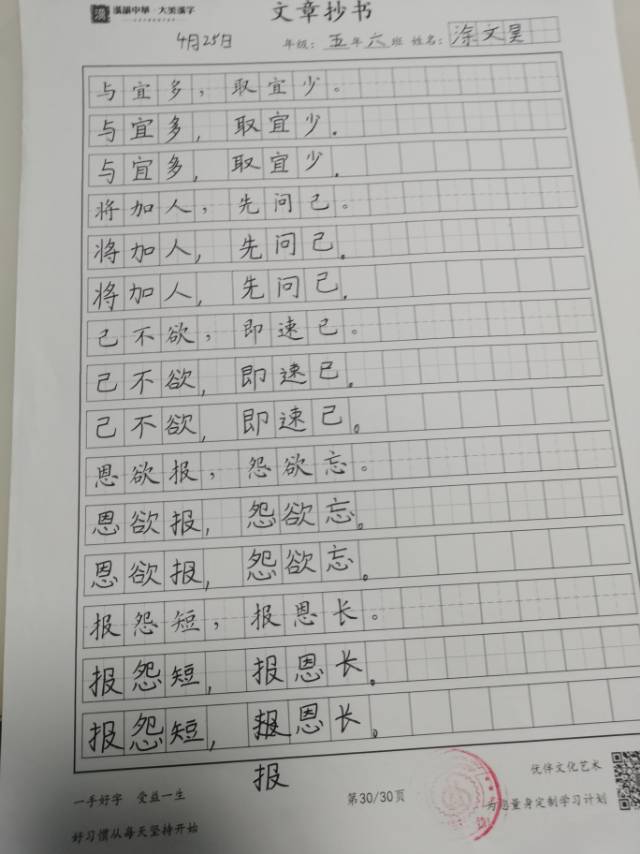 漢韻中華 大美漢字
文章抄书
4月25日
年级：五年六班 姓名：涂文昊
与宜多，取宜少。
与宜多，取宜少.
与宜多，取宜少.
将加人，先问己。
将加人，先问己.
将加人，先问己.
己不欲，即速已。
己不欲，即速已.
己不欲，即速已。
恩欲报，怨欲忘。
恩欲报，怨欲忘。
恩欲报，怨欲忘。
报怨短，报恩长。
报怨短，报恩长。
报怨短，报恩长。
报
一手好字 受益一生
第30/30页
优伴文化艺术
为您量身定制学习计划
好习惯从每天坚持开始